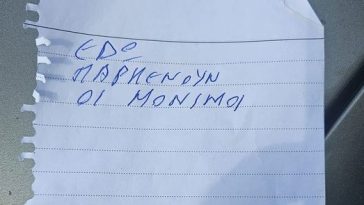 ΕΔΩ
ΠΑΡΚΕΝΟΥΝ
ΟΙ ΜΟΝΙΜΟΙ